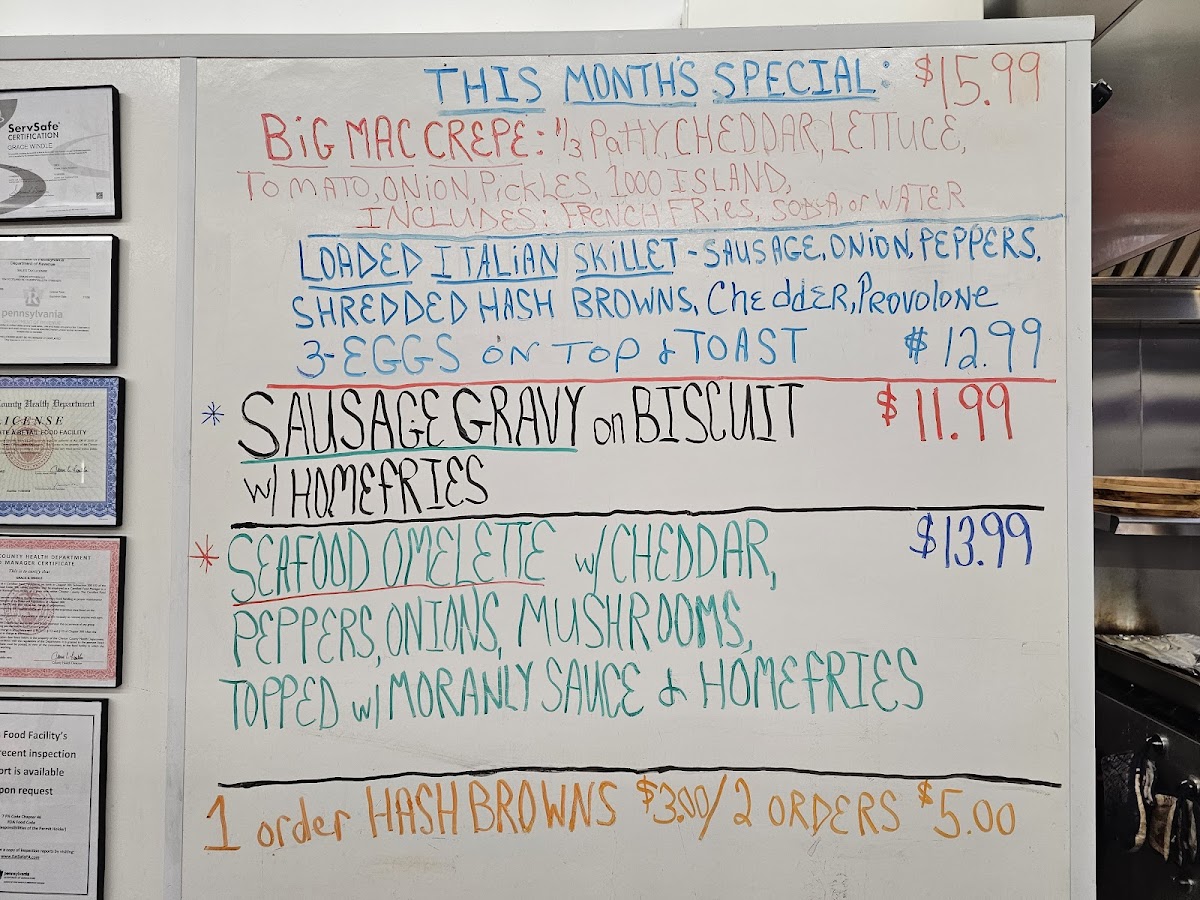 THIS MONTH'S SPECIAL: $15.99
BIG MAC CREPE: 1/3 PATTY, CHEDDAR, LETTUCE,
TOMATO, ONION, PICKLES, 1000 ISLAND,
INCLUDES: FRENCH FRIES, SODA, or WATER
LOADED ITALIAN SKILLET - SAUSAGE, ONION, PEPPERS,
SHREDDED HASH BROWNS, CHEDDER, PROVOLONE
3-EGGS ON TOP & TOAST $12.99
* SAUSAGE GRAVY on BISCUIT $11.99
w/ HOMEFRIES
* SEAFOOD OMELETTE w/ CHEDDAR, $13.99
PEPPERS, ONIONS, MUSHROOMS,
TOPPED w/ MORANLY SAUCE & HOMEFRIES
1 order HASH BROWNS $3.00/2 ORDERS $5.00
ServSafe
CERTIFICATION
GRACE WINDLE
Department of Revenue
pennsylvania
County Health Department
LICENSE
A RETAIL FOOD FACILITY
COUNTY HEALTH DEPARTMENT
MANAGER CERTIFICATE
Food Facility's
recent inspection
is available
upon request
pennsylvania